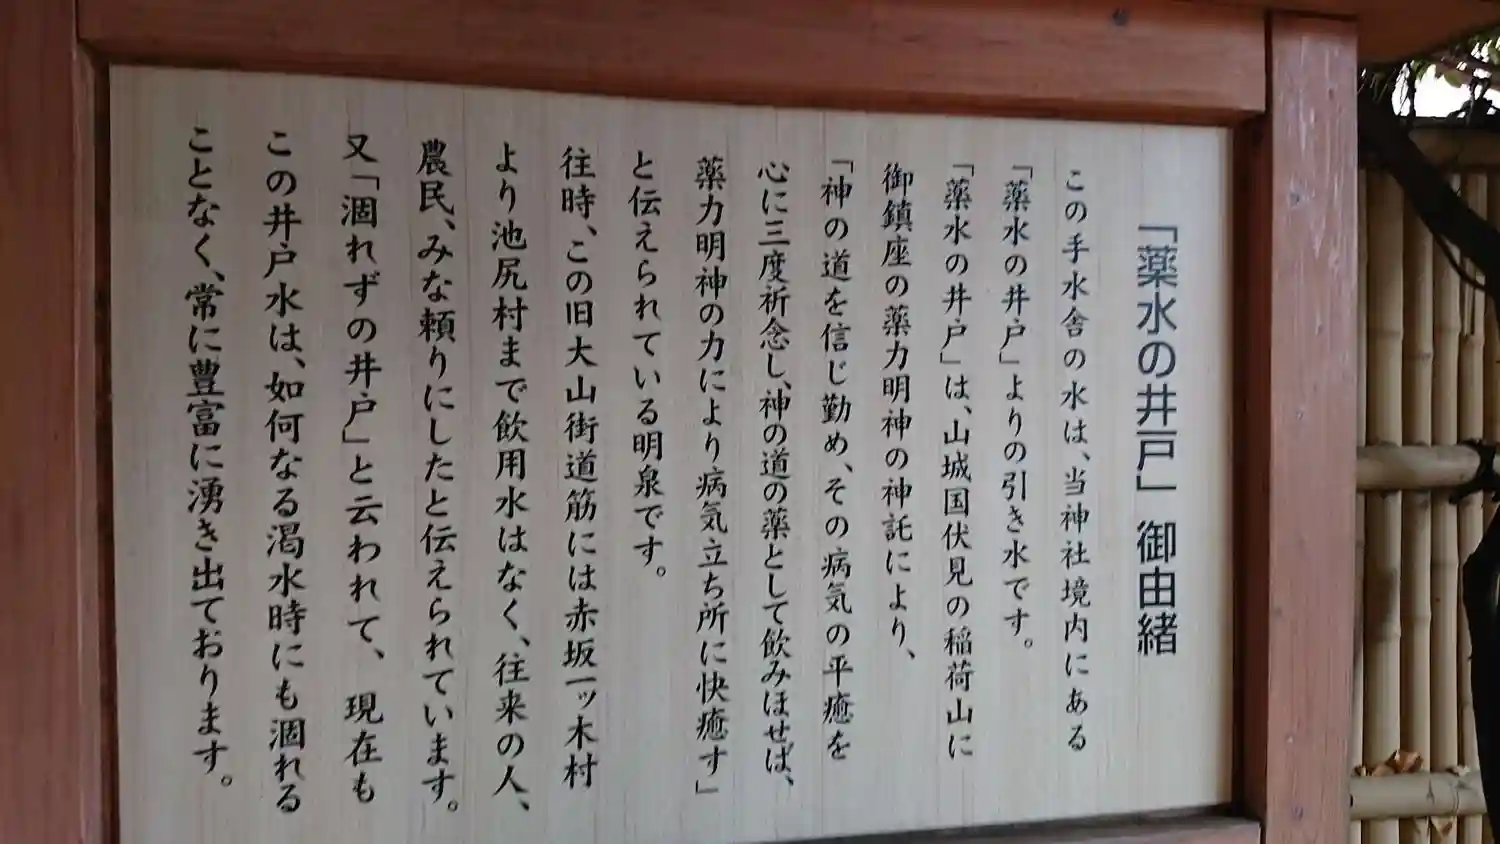 「薬水の井戸」御由緒
この手水舎の水は、当神社境内にある
「薬水の井戸」よりの引き水です。
「薬水の井戸」は、山城国伏見の稲荷山に
御鎮座の薬力明神の神託により、
「神の道を信じ勤め、その病気の平癒を
心に三度祈念し、神の道の薬として飲みほせば、
薬力明神の力により病気立ち所に快癒す」
と伝えられている明泉です。
往時、この旧大山街道筋には赤坂一ッ木村
より池尻村まで飲用水はなく、往来の人、
農民、みな頼りにしたと伝えられています。
又「涸れずの井戸」と云われて、現在も
この井戸水は、如何なる渇水時にも涸れる
ことなく、常に豊富に湧き出ております。